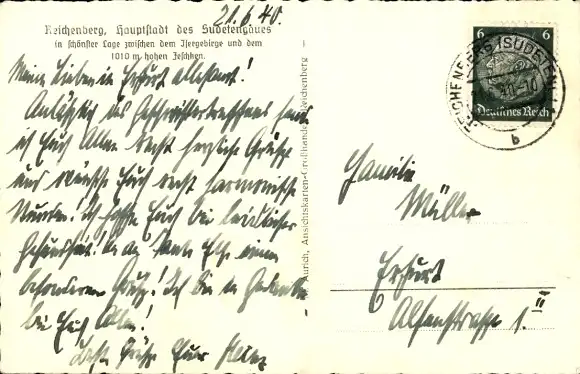 21.6.40.
Reichenberg, Hauptstadt des Sudetengaues
in schönster Lage zwischen dem Isergebirge und dem
1010 m hohen Jeschken.
Meine Lieben in Erfurt allesamt!
Anläßlich des Geschwistertreffens sende
ich Euch Allen recht herzliche Grüße
und wünsche Euch recht harmonische
Stunden. Ich hoffe Euch bei
Gesundheit!
besonderen Ich bin in Gedanken
bei Euch Allen!
Beste Grüße Euer
Aurich, Ansichtskarten-Großhandel, Reichenberg
6 6
Deutsches Reich
REICHENBERG (SUDETENL
40.-10
b
Familie
Müller
Erfurt
Alsenstrasse 1. II